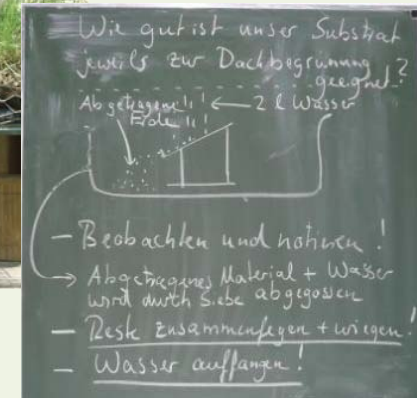 Wie gut ist unser Substrat
jeweils zur Dachbegrünung
geeignet?
Abgetragene ← 2 l Wasser
Erde
- Beobachten und notieren!
→ Abgetragenes Material + Wasser
wird durch Siebe abgegossen
- Reste zusammenfegen + wiegen!
- Wasser auffangen!